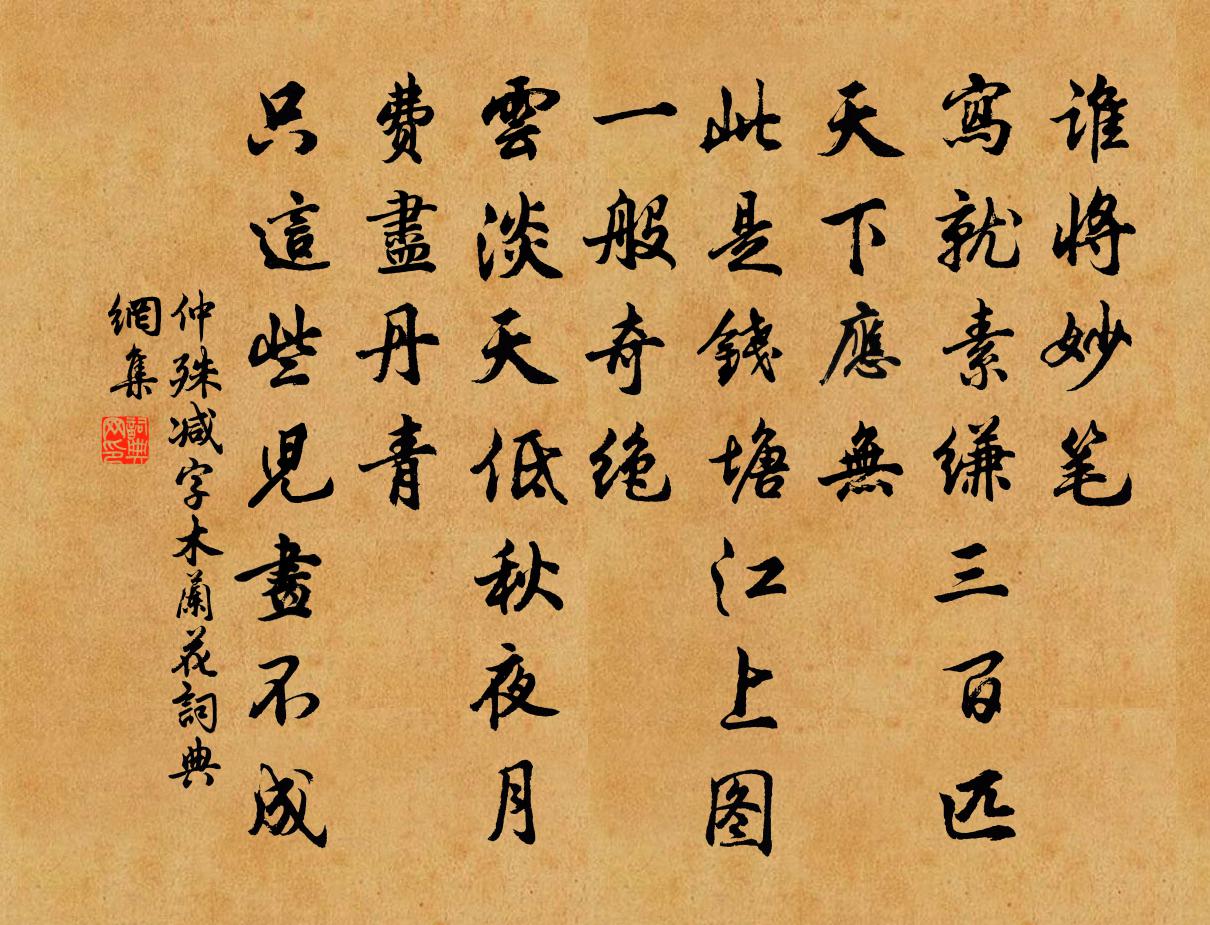 谁將妙笔
寫就素缣三百匹
天下應無
此是錢塘江上图
一般奇绝
雲淡天低秋夜月
費盡丹青
只這些兒畫不成
仲殊减字木蘭花詞典
網集
詞典
网印